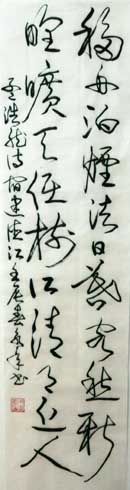 移舟泊煙渚日暮客愁新
野曠天低樹江清月近人
孟浩然詩宿建德江壬辰春書